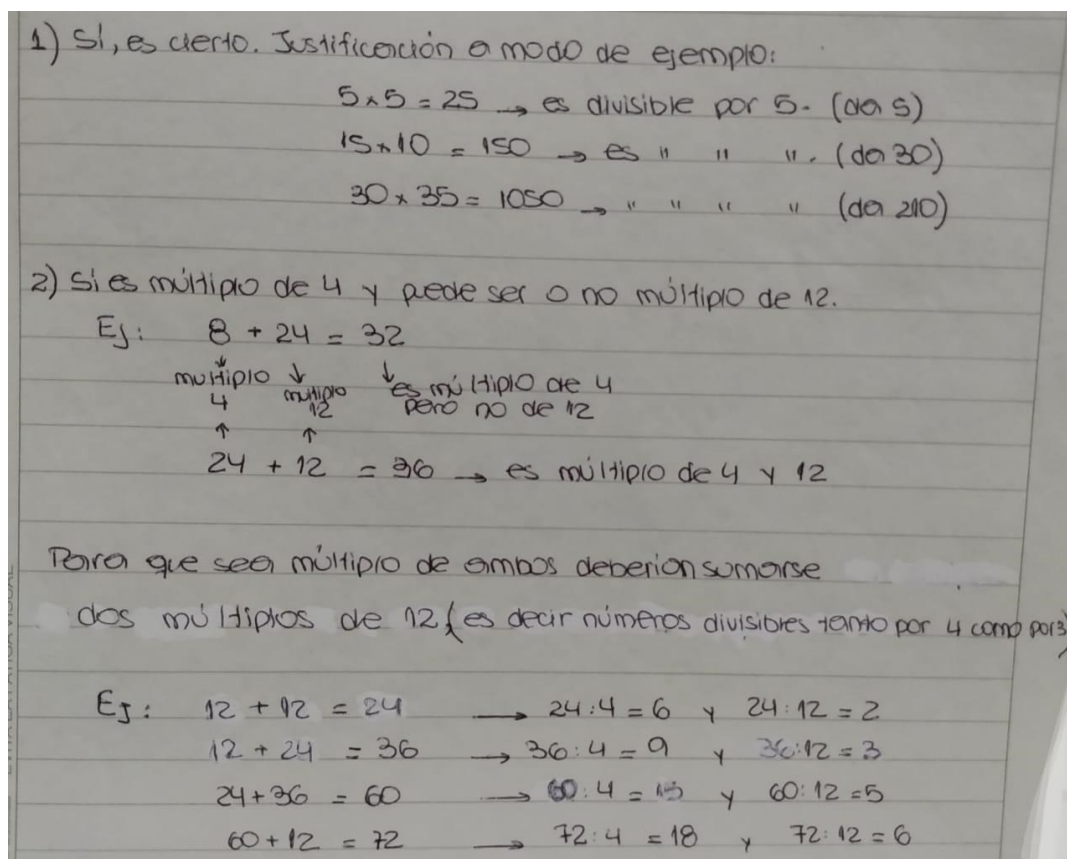 1) Sí, es cierto. Justificación a modo de ejemplo:
5x5 = 25 → es divisible por 5. (da 5)
15x10 = 150 → es " " ". (da 30)
30x35 = 1050 → " " " " (da 210)
2) Si es múltiplo de 4 y puede ser o no múltiplo de 12.
Ej: 8 + 24 = 32
↓ ↓ ↓
multiplo 4 multiplo 12 es múltiplo de 4
pero no de 12
↑ ↑
24 + 12 = 36 → es múltiplo de 4 y 12
Para que sea múltiplo de ambos deberian sumarse
dos múltiplos de 12 (es decir números divisibles tanto por 4 como por 3)
Ej: 12 + 12 = 24 → 24:4 = 6 y 24:12 = 2
12 + 24 = 36 → 36:4 = 9 y 36:12 = 3
24+36 = 60 → 60:4 = 15 y 60:12 = 5
60+12 = 72 → 72:4 = 18 y 72:12 = 6